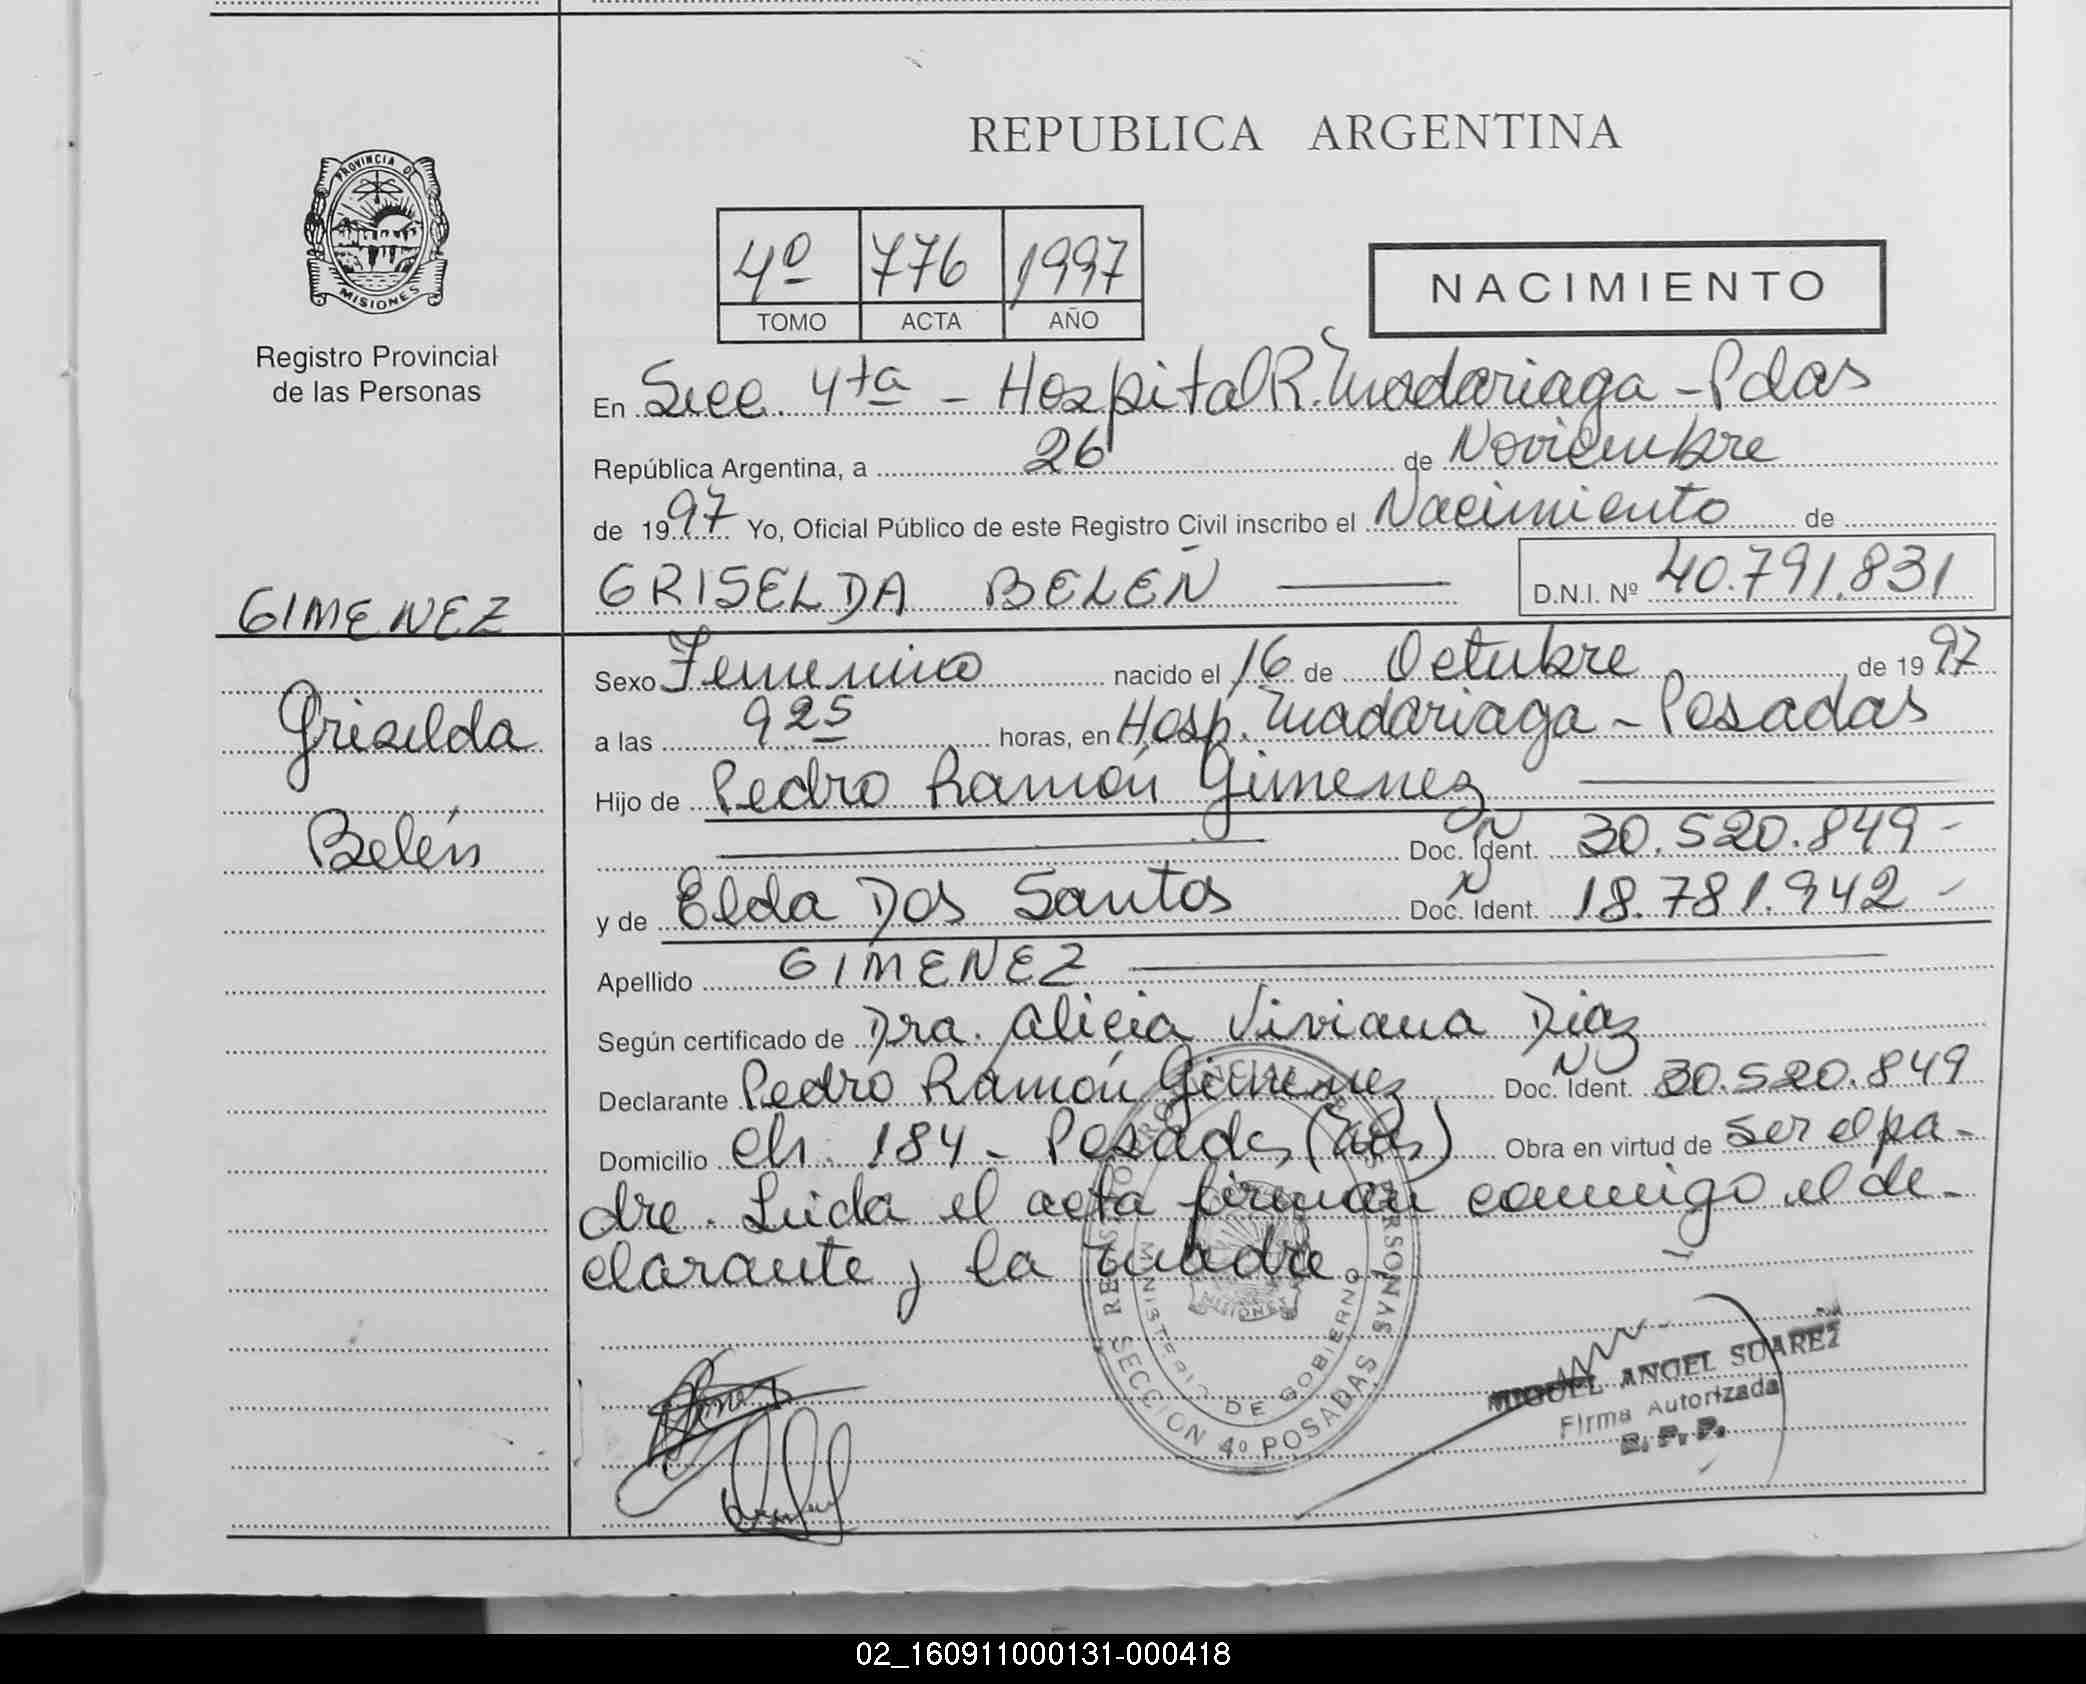 REPUBLICA ARGENTINA
PROVINCIA DE
MISIONES
Registro Provincial
de las Personas
4º 776 1997
TOMO ACTA AÑO
NACIMIENTO
En Secc. 4ta - Hospital R. Madariaga - Pdas
República Argentina, a 26 de Noviembre
de 1997 Yo, Oficial Público de este Registro Civil inscribo el Nacimiento de
GRISELDA BELEN D.N.I. Nº 40.791.831
GIMENEZ
Griselda
Belén
Sexo Femenino nacido el 16 de Octubre de 1997
a las 9 25 horas, en Hosp. Madariaga - Posadas
Hijo de Pedro Ramón Gimenez
Doc. Ident. 30.520.849-
y de Elda Dos Santos Doc. Ident. 18.781.942-
Apellido GIMENEZ
Según certificado de Dra. Alicia Viviana Diaz
Declarante Pedro Ramón Gimenez Doc. Ident. 30.520.849
Domicilio Ch. 184 - Posadas (Mns) Obra en virtud de ser el pa-
dre. Leida el acta firman conmigo el de-
clarante y la madre.
MINISTERIO DE GOBIERNO
MISIONES
SECCION 4º POSADAS
MIGUEL ANGEL SUAREZ
Firma Autorizada
R. P. P.
02_160911000131-000418